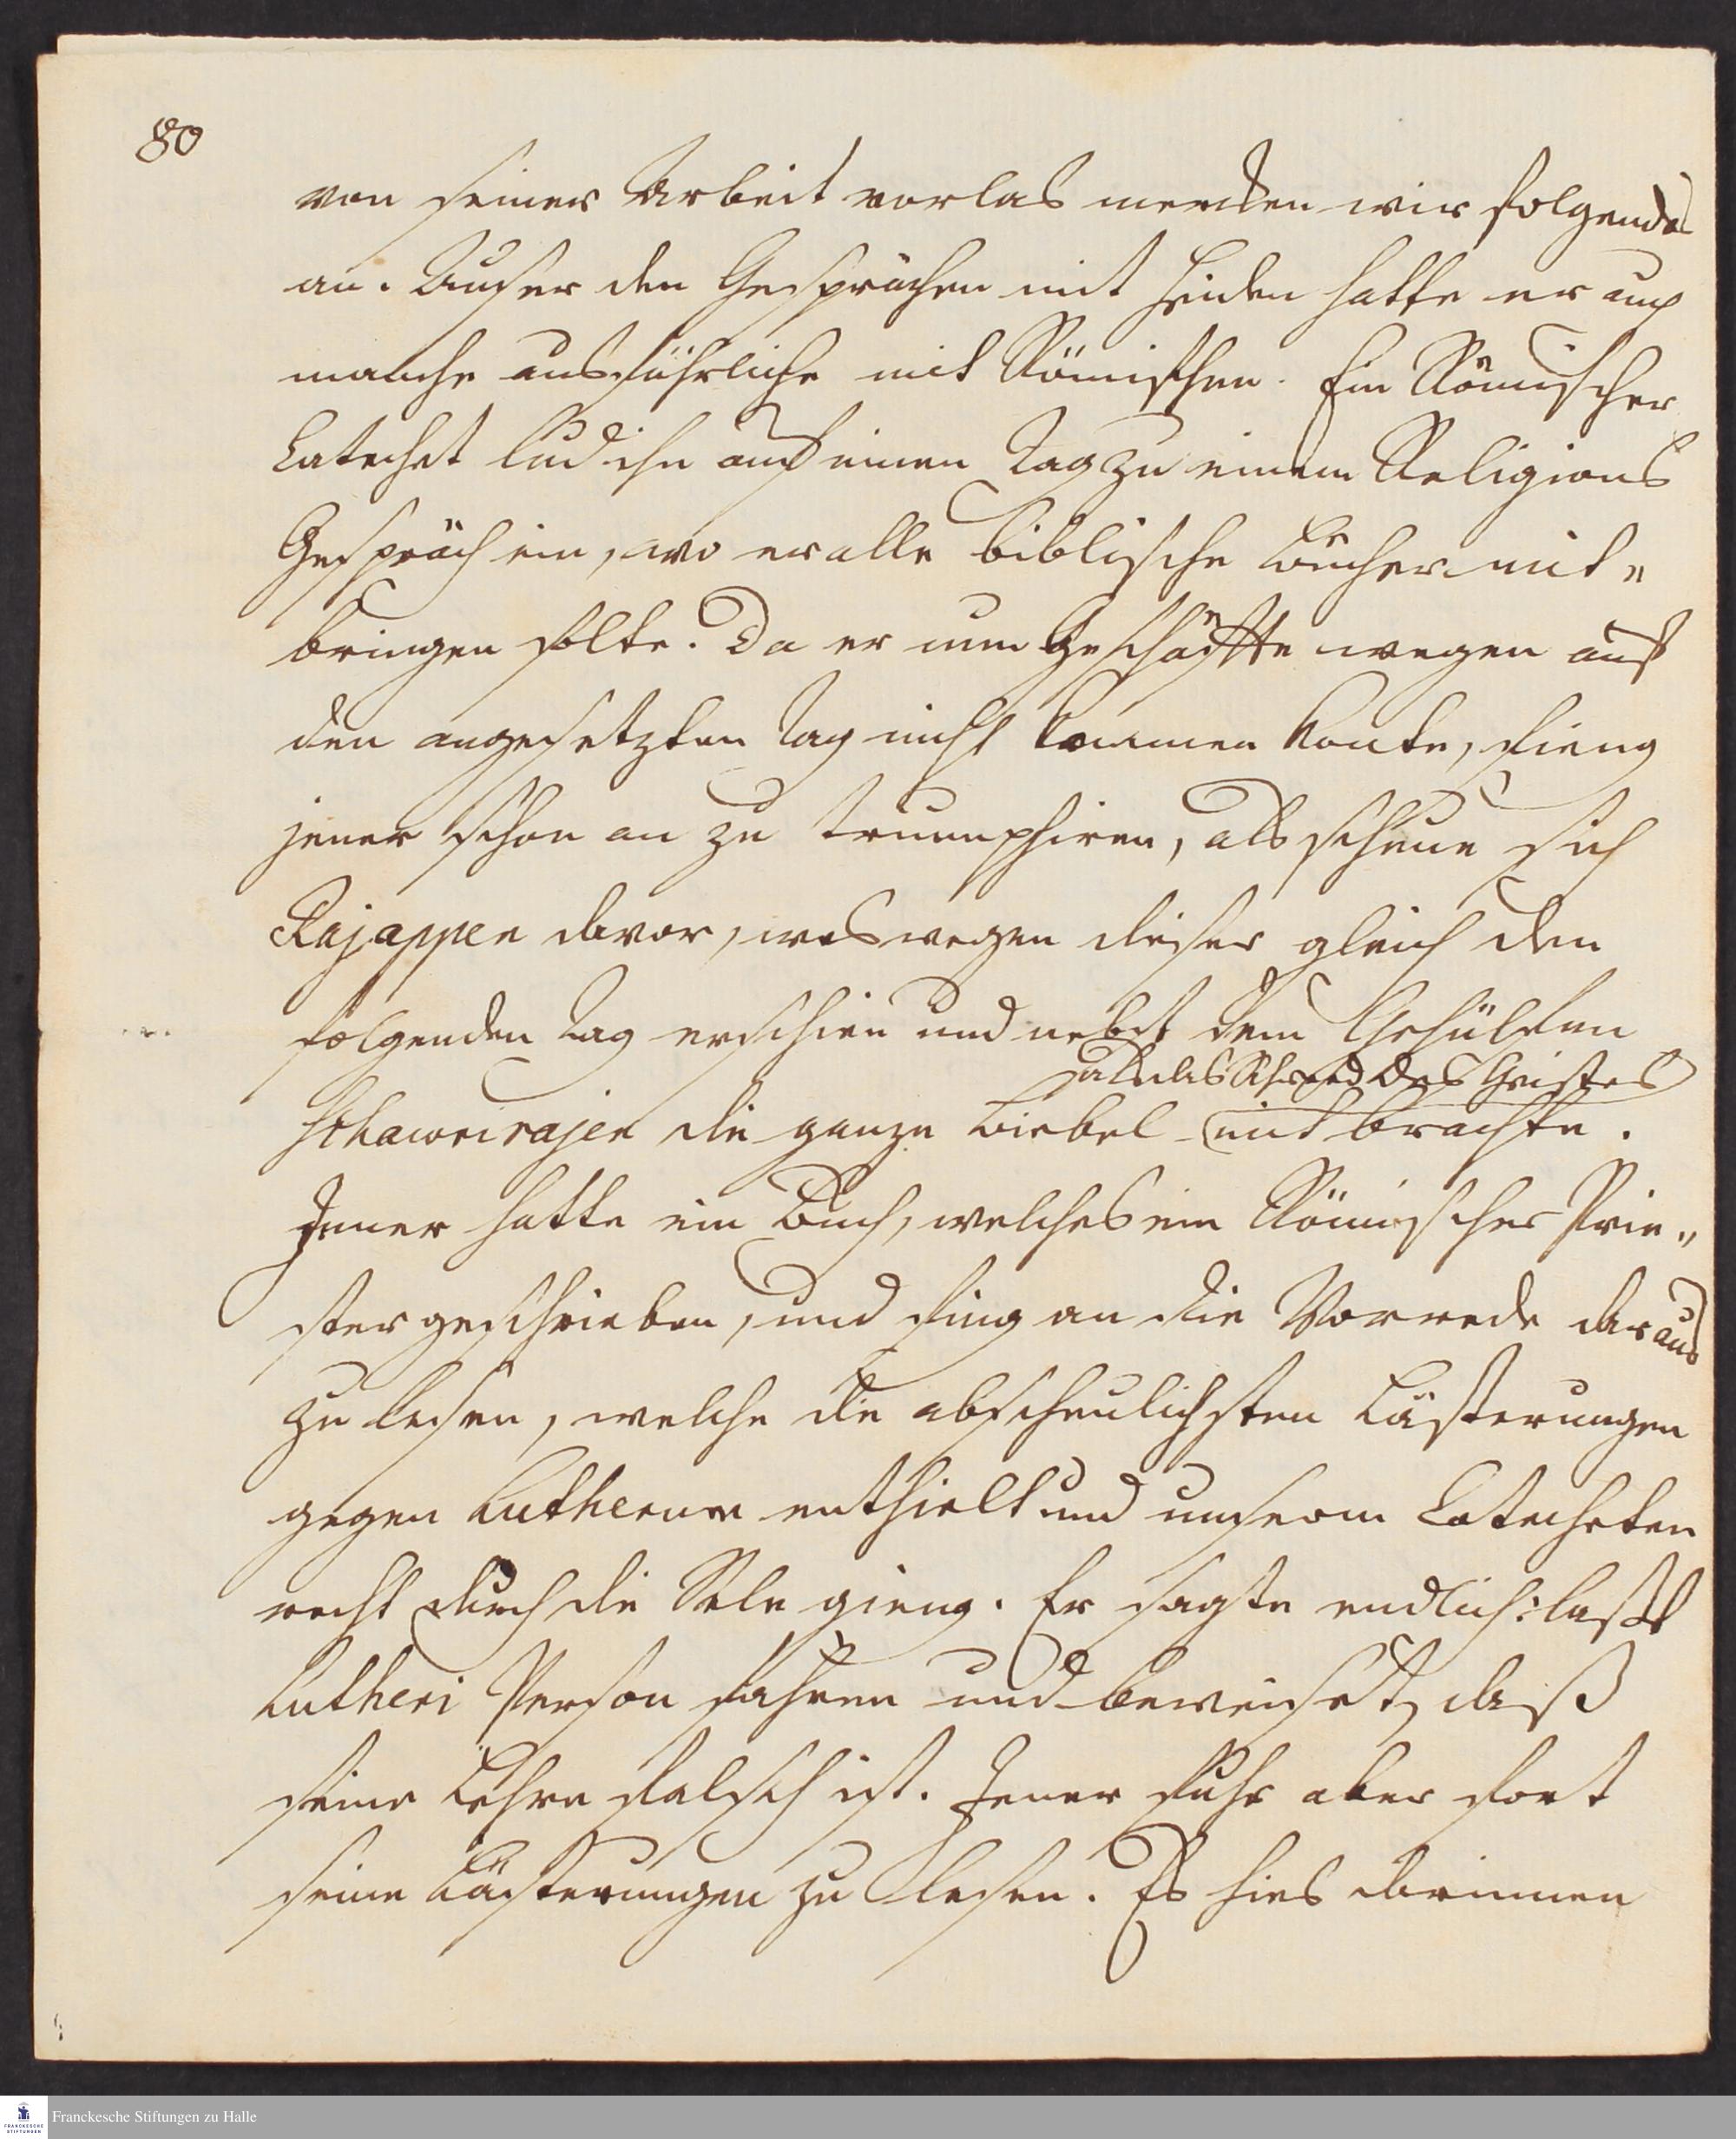 80
von seiner Arbeit vorlas merken wir folgendes
an. Auser den Gesprächen mit Heiden hatte er auch
manche ausführliche mit Römischen. Ein Römischer
Catechet lud ihn auf einen Tag zu einem Religions
Gespräch ein, wo er alle biblische Bücher mit„
bringen solte. Da er nun Geschäffte wegen auf
den angesetzten Tag nicht kommen konte, fieng
jener schon an zu triumphiren, als scheue sich
Rajappen davor, weswegen dieser gleich den
folgenden Tag erschien und nebst dem Gehülfen
als das Schwerd des Geistes
Schawrirajen die ganze Biebel mit brachte.
Jener hatte ein Buch, welches ein Römischer Prie„
ster geschrieben, und fing an die Vorrede daraus
zu lesen, welche die abscheulichsten Lästerungen
gegen Lutherum enthielt und unserm Catecheten
recht durch die Sele gieng. Er sagte endlich: laßt
Lutheri Person fahren und beweiset, daß
seine Lehre falsch ist. Jener fuhr aber fort
seine Lästerungen zu lesen. Es hies darinnen
Franckesche Stiftungen zu Halle